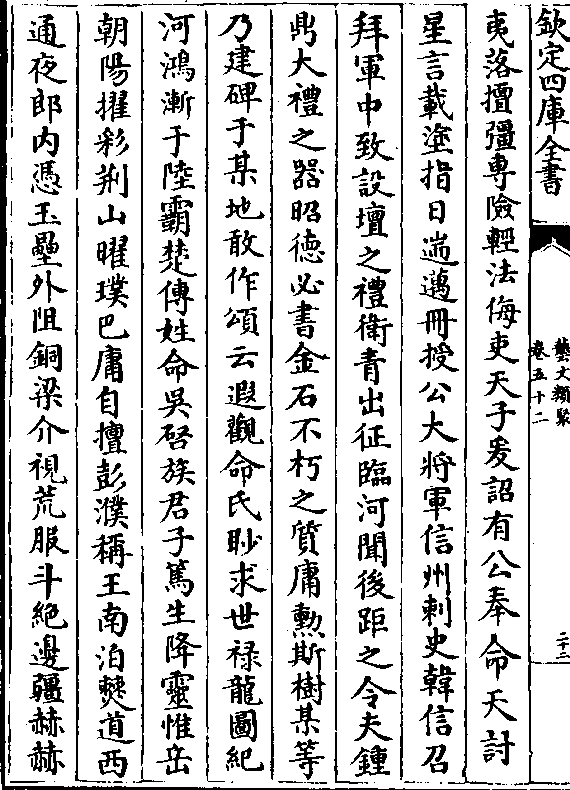 欽定四庫全書
藝文類聚
卷五十二
二十二
夷落擅彊專險輕法侮吏天子爰詔有公奉命天討
星言載塗指日遄邁冊授公大將軍信州刺史韓信召
拜軍中致設壇之禮衛青出征臨河聞後距之令夫鍾
鼎大禮之器昭德必書金石不朽之質庸勲斯樹某等
乃建碑于某地敢作頌云遐觀命氏眇求世禄龍圖紀
河鴻漸于陸霸楚傳姓命吳啓族君子篤生降靈惟岳
朝陽擢彩荆山曜璞巴庸自擅彭濮稱王南泊僰道西
通夜郎内憑玉壘外阻銅梁介視荒服斗絶邊疆赫赫